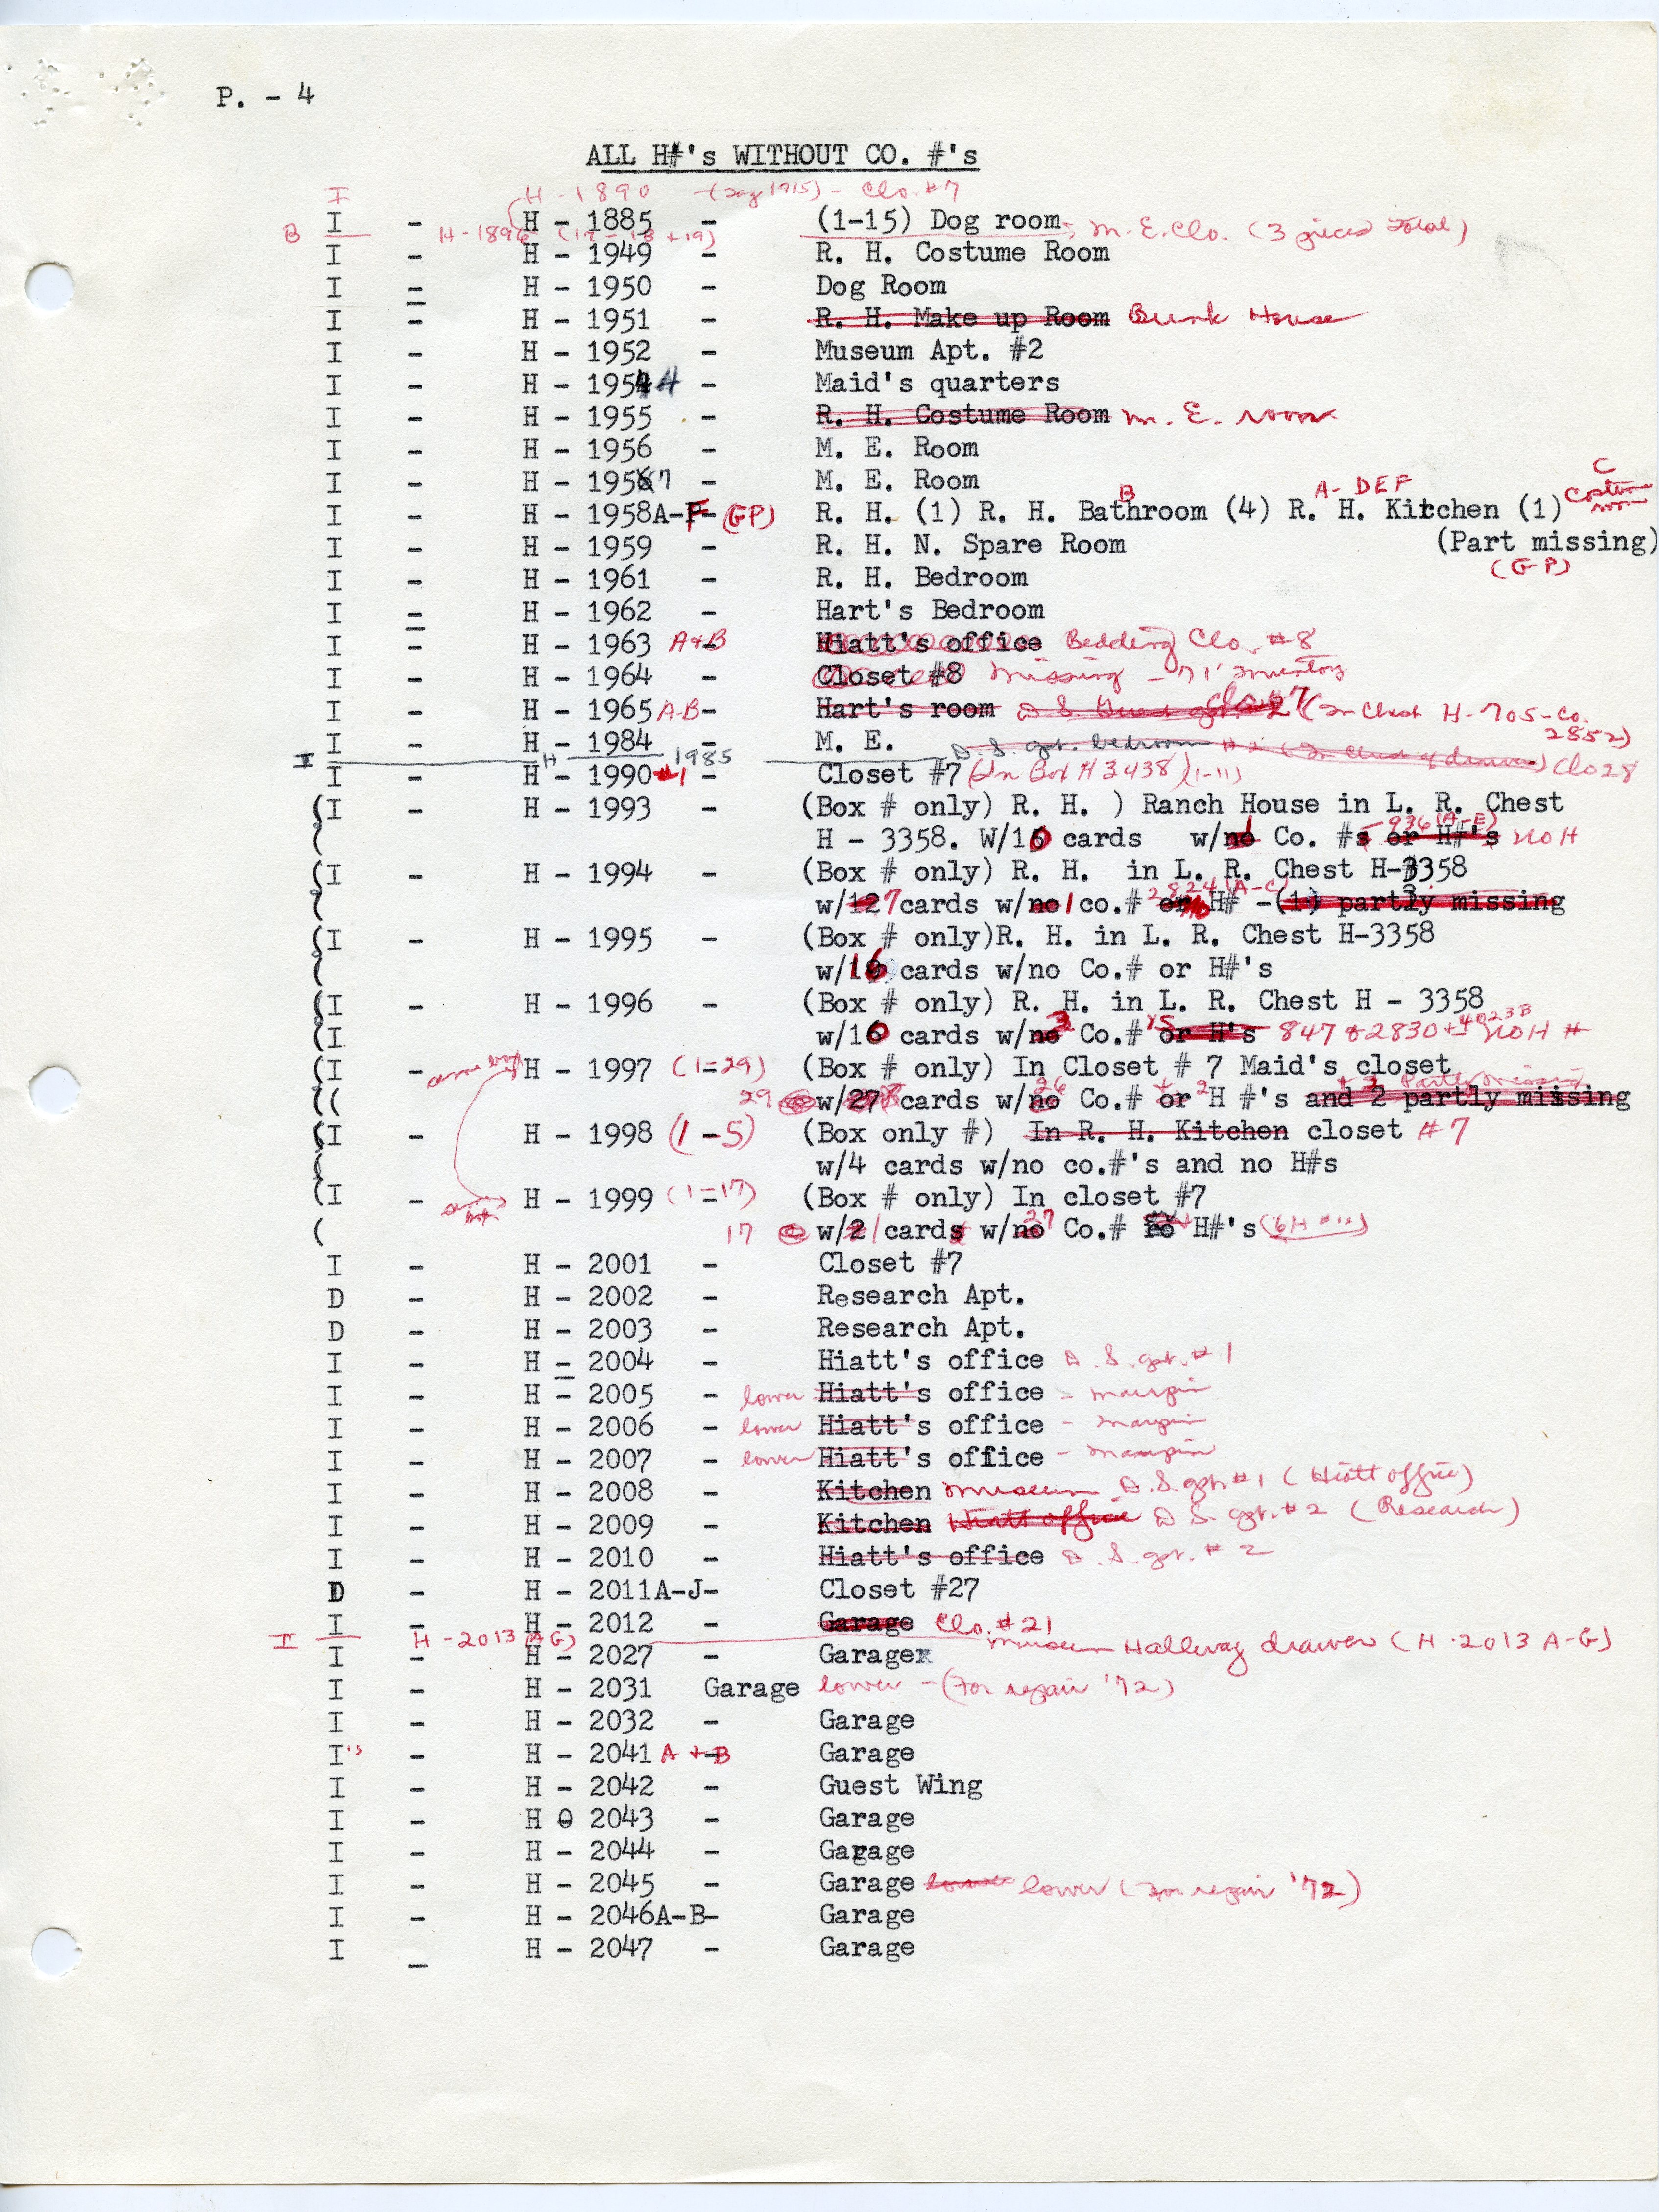 P. - 4
ALL H#'s WITHOUT CO. #'s
I H - 1890 - (Tag 1915) - Clo. #7
I - H - 1885 - (1-15) Dog room
B H-1896 (17 - 18 + 19) M. E. Clo. (3 pieces total)
I - H - 1949 - R. H. Costume Room
I - H - 1950 - Dog Room
I - H - 1951 - R. H. Make up Room Bunk House
I - H - 1952 - Museum Apt. #2
I - H - 1954 4 - Maid's quarters
I - H - 1955 - R. H. Costume Room M. E. room
I - H - 1956 - M. E. Room
I - H - 1957 - M. E. Room
B A-DEF C
I - H - 1958A-F- (GP) R. H. (1) R. H. Bathroom (4) R. H. Kitchen (1) Costume room
I - H - 1959 - R. H. N. Spare Room (Part missing)
(GP)
I - H - 1961 - R. H. Bedroom
I - H - 1962 - Hart's Bedroom
I - H - 1963 A+B Hiatt's office Bedding Clo. #8
I - H - 1964 - Closet #8 Missing - 71' Inventory
I - H - 1965 A-B- Hart's room D. S. Guest apt. 2 Clo #7 (In Chest H-705-Co. 2852)
I - H - 1984 - M. E.
I H 1985 D. S. apt. bedroom #2 (In Chest of drawers) Clo 28
I - H - 1990 #1 - Closet #7 (In Box H 3438) (1-11)
(I - H - 1993 - (Box # only) R. H. ) Ranch House in L. R. Chest
H - 3358. W/16 cards w/no 1 Co. #s - 936 (A-E) or H#'s no H
(I - H - 1994 - (Box # only) R. H. in L. R. Chest H-3358
w/127 cards w/no 1 co.# 2824 (A-C) or no H# -(1) partly missing
(I - H - 1995 - (Box # only)R. H. in L. R. Chest H-3358
w/16 cards w/no Co.# or H#'s
(I - H - 1996 - (Box # only) R. H. in L. R. Chest H - 3358
(I w/16 cards w/no 3 Co.#'s or H's 847 + 2830 + 4023B no H #
(I - same box H - 1997 (1=29) (Box # only) In Closet # 7 Maid's closet
(( 29 w/27 cards w/no 26 Co.# or + 2 H #'s and 2 partly missing
(I - H - 1998 (1-5) (Box only #) In R. H. Kitchen closet #7
w/4 cards w/no co.#'s and no H#s
(I - same box H - 1999 (1=17) (Box # only) In closet #7
( 17 w/2 1 cards w/no 27 Co.# H#'s (6 H #'s)
I - H - 2001 - Closet #7
D - H - 2002 - Research Apt.
D - H - 2003 - Research Apt.
I - H - 2004 - Hiatt's office D. S. apt. #1
I - H - 2005 - lower Hiatt's office - margin
I - H - 2006 - lower Hiatt's office - margin
I - H - 2007 - lower Hiatt's office - margin
I - H - 2008 - Kitchen museum D. S. apt. #1 (Hiatt office)
I - H - 2009 - Kitchen Hiatt office D S. apt. #2 (Research)
I - H - 2010 - Hiatt's office D. S. apt. #2
D - H - 2011A-J- Closet #27
I - H - 2012 - Garage Clo. #21
I H-2013 (AG) museum Hallway drawer (H-2013 A-G)
I - H - 2027 - Garagex
I - H - 2031 Garage lower - (For repair '72)
I - H - 2032 - Garage
I's - H - 2041 A + B Garage
I - H - 2042 - Guest Wing
I - H 0 2043 - Garage
I - H - 2044 - Garage
I - H - 2045 - Garage lower lower (For repair '72)
I - H - 2046A-B- Garage
I - H - 2047 - Garage